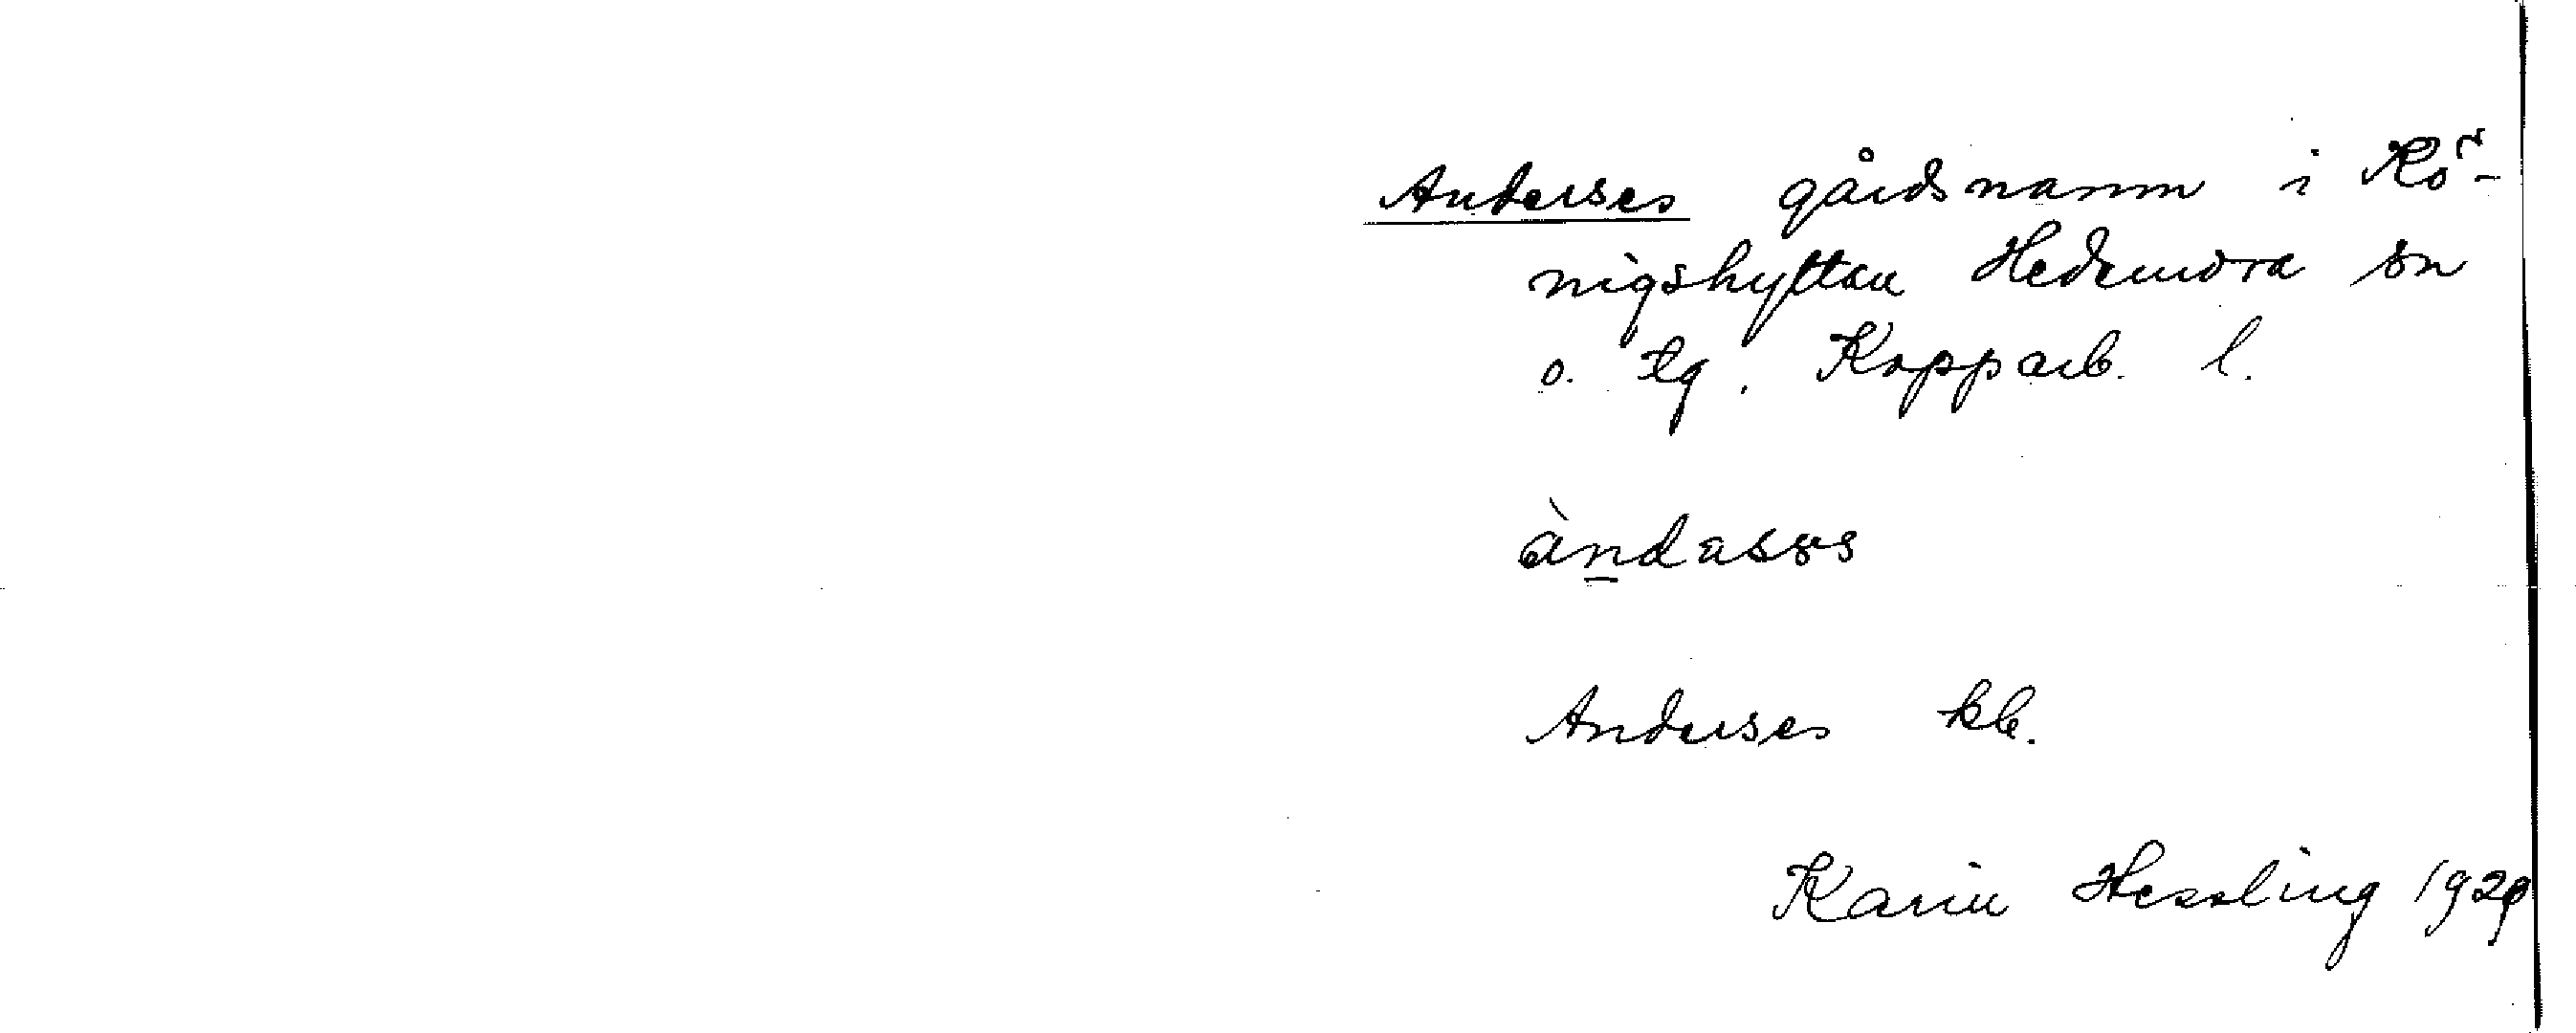 Anderses gårdsnamn i Kö-
nigshyttan Hedemora sn
o. tg. Kopparb. l.
àndasəs
Anderses kb.
Karin Hessling 1929